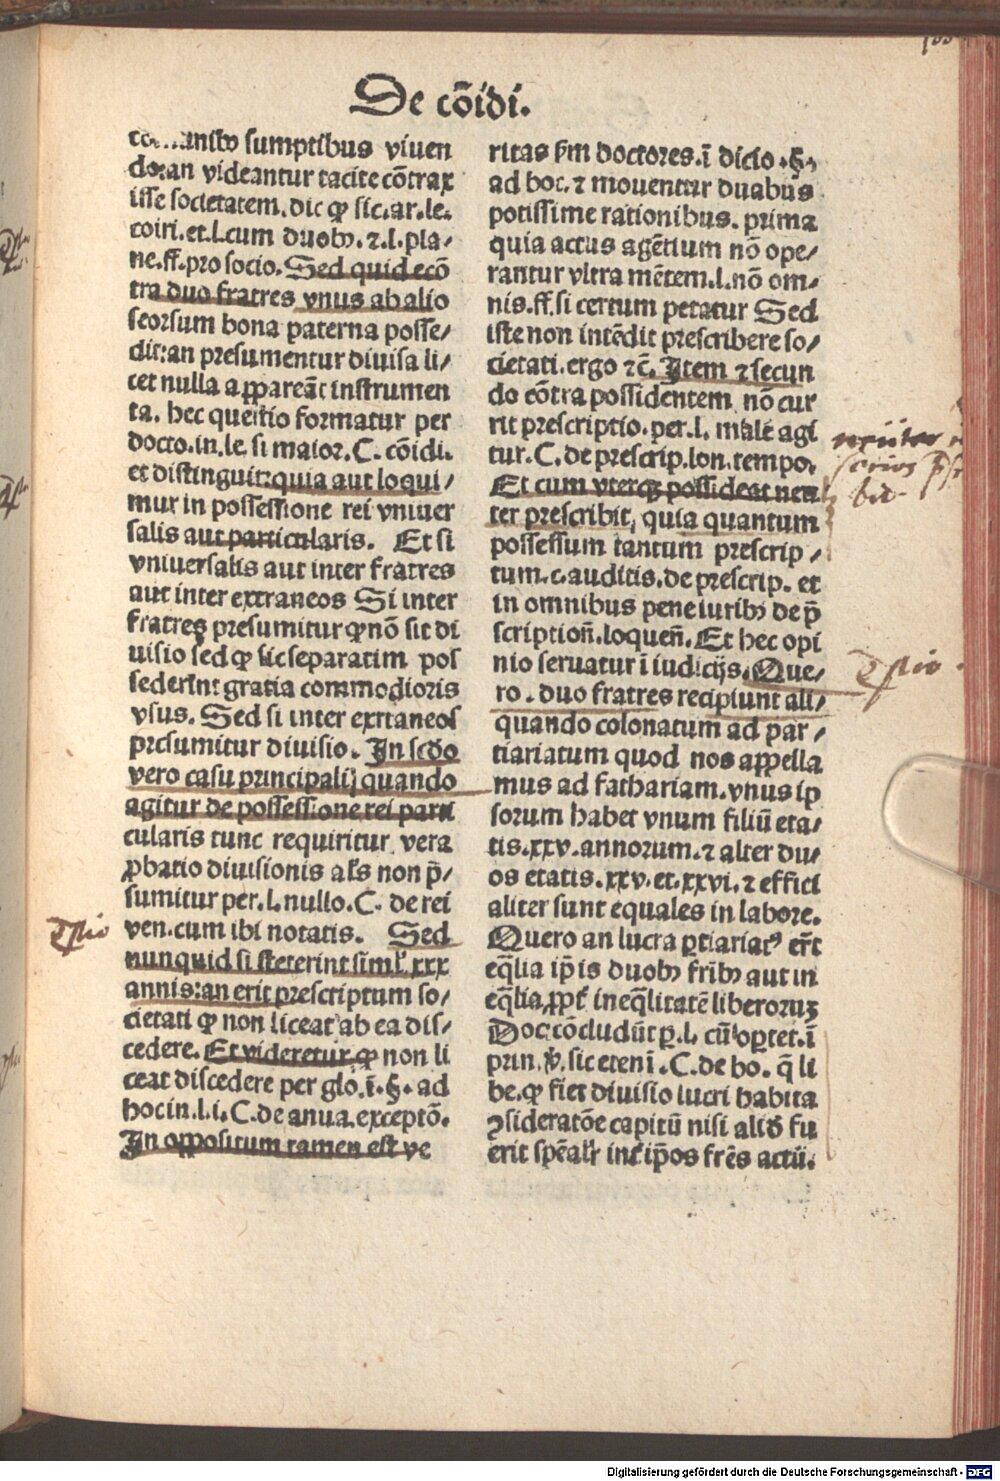 De cõidi.
sumptibus viuen
do:an videantur tacite cõtrax
isse societatem.dic ꝙ sic.ar.le.
coiri.et.l.cum duobꝫ.⁊.l.pla/
ne.ff.pro socio. Sed quid ecõ
tra duo fratres vnus ab alio
seorsum bona paterna posse/
dit:an presumentur diuisa li/
cet nulla aꝓpareãt instrumen
ta. hec questio formatur per
docto.in.le.si maior.C. cõidi.
et distinguit:quia aut loqui/
mur in possessione rei vniuer
salis aut particularis. Et si
vniuersalis aut inter fratres
aut inter extraneos Si inter
fratres presumitur ꝙ nõ sit di
uisio sed ꝙ sic separatim pos
sederint gratia commodioris
vsus. Sed si inter extraneos
presumitur diuisio. In scd̃o
vero casu principalij quando
agitur de possessione rei parti
cularis tunc requiritur vera
ꝓbatio diuisionis al̃s non p̃/
sumitur per.l.nullo.C. de rei
ven.cum ibi notatis. Sed
nunquid si steterint siml̃.xxx
annis:an erit prescriptum so/
cietati ꝙ non liceat ab ea dis/
cedere. Et videretur ꝙ non li
ceat discedere per glo.ĩ.§. ad
hoc in.l.i.C.de anua.exceptõ.
In oppositum tamen est ve
ritas ẜm doctores.ĩ dicto.§.
ad hoc.⁊ mouentur duabus
potissime rationibus. prima
quia actus agẽtium nõ ope/
rantur vltra mẽtem.l.nõ om/
nis.ff.si certum petatur Sed
iste non intẽdit prescribere so/
cietati.ergo ⁊c̃. Item ⁊ secun
do cõtra possidentem nõ cur
rit prescriptio.per.l. male agi
tur.C.de prescrip.lon.tempo.
Et cum vterqꝫ possideat neu
ter prescribit, quia quantum
possessum tantum prescrip/
tum.c.auditis.de prescrip. et
in omnibus pene iuribꝫ de p̃
scriptioñ.loqueñ.Et hec opi
nio seruatur ĩ iudicijs. Que/
ro. duo fratres recipiunt ali/
quando colonatum ad par/
tiariatum quod nos appella
mus ad fathariam.vnus ip
sorum habet vnum filiũ eta/
tis.xxv.annorum.⁊ alter du/
os etatis.xxv.et.xxvi.⁊ effici
aliter sunt equales in labore.
Quero an lucra ꝑtiariatꝰ er̃t
eq̃lia ip̃is duobꝫ fr̃ibꝫ aut in
eq̃lia ꝓpt̃ ineq̃litatẽ liberoruꝫ
Doc.cõcludũt ꝑ.l. cũ oꝑtet.ĩ
prin.ꝟ.sic eteni.C.de bo. q̃ li
be.ꝙ fiet diuisio lucri habita
ꝯsideratõe capitũ nisi aliđ fu
erit spẽal̃r int̃ ip̃os fr̃es actũ.
neuter
Digitalisierung gefördert durch die Deutsche Forschungsgemeinschaft - DFG